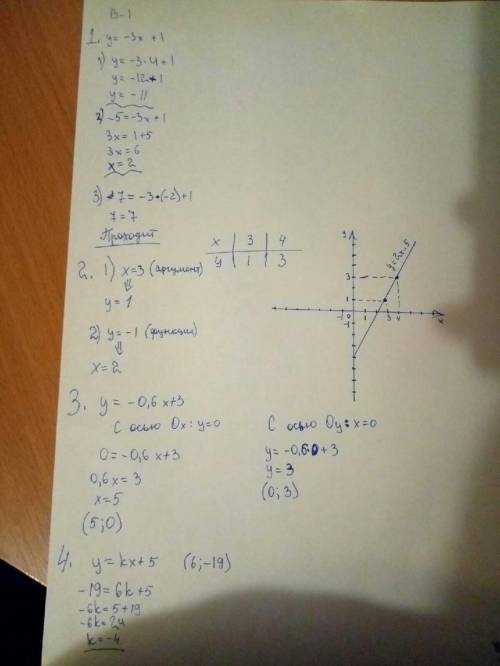 В-1
1. y = -3x + 1
1) y = -3·4+1
y = -12+1
y = -11
2) -5 = -3x+1
3x = 1+5
3x = 6
x = 2
3) 7 = -3·(-2)+1
7 = 7
Проходит
x | 3 | 4
y | 1 | 3
2. 1) x=3 (аргумент)
⇓
y = 1
2) y = -1 (функция)
⇓
x = 2
y
y=2x-5
3
1
-1 0 1 3 4 x
-1
3. y = -0,6x+3
С осью Ox: y=0
0 = -0,6x+3
0,6x = 3
x = 5
(5;0)
С осью Oy: x=0
y = -0,6·0+3
y = 3
(0;3)
4. y = kx+5 (6;-19)
-19 = 6k+5
-6k = 5+19
-6k = 24
k = -4